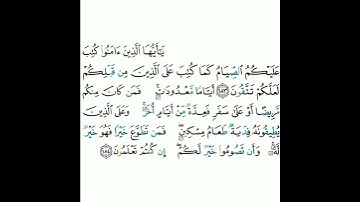 يَٰٓأَيُّهَا ٱلَّذِينَ ءَامَنُوا۟ كُتِبَ
عَلَيْكُمُ ٱلصِّيَامُ كَمَا كُتِبَ عَلَى ٱلَّذِينَ مِن قَبْلِكُمْ
لَعَلَّكُمْ تَتَّقُونَ ١٨٣ أَيَّامًا مَّعْدُودَٰتٍ ۚ فَمَن كَانَ مِنكُم
مَّرِيضًا أَوْ عَلَىٰ سَفَرٍ فَعِدَّةٌ مِّنْ أَيَّامٍ أُخَرَ ۚ وَعَلَى ٱلَّذِينَ
يُطِيقُونَهُۥ فِدْيَةٌ طَعَامُ مِسْكِينٍ ۖ فَمَن تَطَوَّعَ خَيْرًا فَهُوَ خَيْرٌ
لَّهُۥ ۚ وَأَن تَصُومُوا۟ خَيْرٌ لَّكُمْ ۖ إِن كُنتُمْ تَعْلَمُونَ ١٨٤